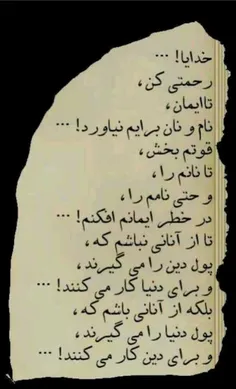 خدایا! ...
رحمتی کن،
تاایمان،
نام و نان برایم نیاورد! ...
قوتم بخش،
تا نانم را،
و حتی نامم را،
در خطر ایمانم افکنم! ...
تا از آنانی نباشم که،
پول دین را می گیرند،
و برای دنیا کار می کنند! ...
بلکه از آنانی باشم که،
پول دنیا را می گیرند،
و برای دین کار می کنند! ...